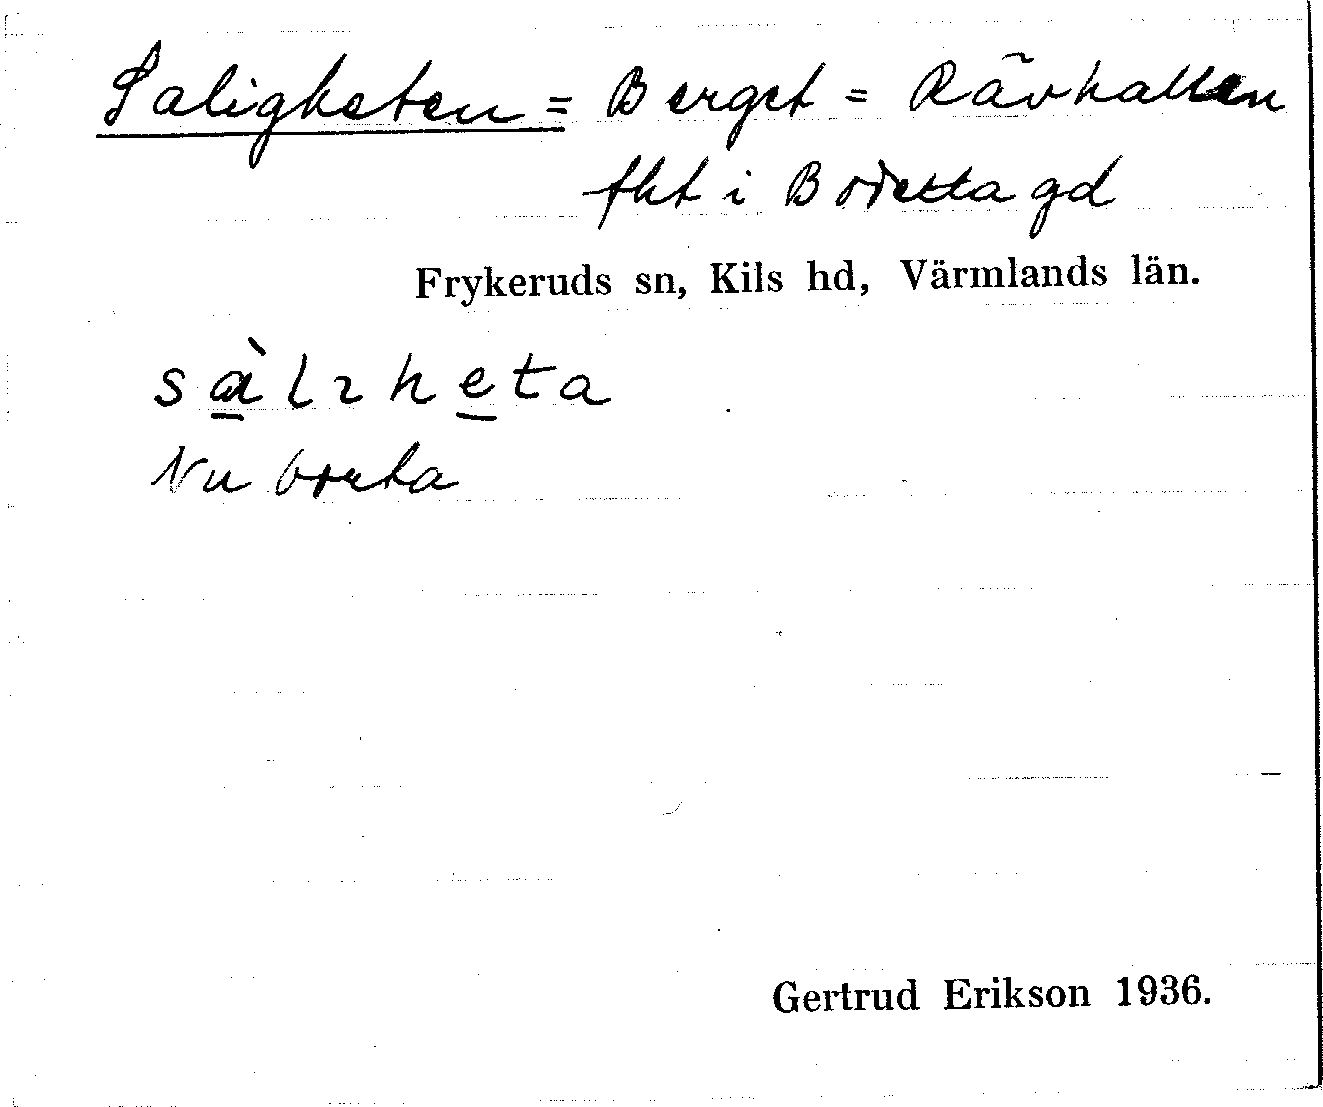 Saligheten = Berget = Rävhallen
fht i gd
Frykeruds sn, Kils hd, Värmlands län.
sàlıheta
Nu borta
Gertrud Erikson 1936.